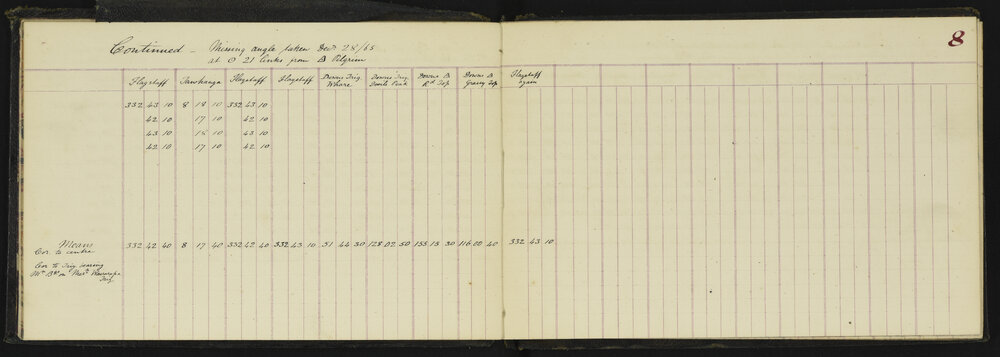 8
Continued - Missing angle taken Decr 28/65
at O 21 links from B Pilgrim
Flagstaff Tawhanga Flagstaff Flagstaff Downs Trig Whare Downs Trig Devils Peak Downs B Rd Top Downs B Grassy Top Flagstaff again
332 43 10 8 18 10 332 43 10
42 10 17 10 42 10
43 10 18 10 43 10
42 10 17 10 42 10
Means 332 42 40 8 17 40 332 42 40 332 43 10 51 44 30 128 02 50 155 15 30 116 00 40 332 43 10
Cor. to centre
Cor to Trig bearing
on Trig